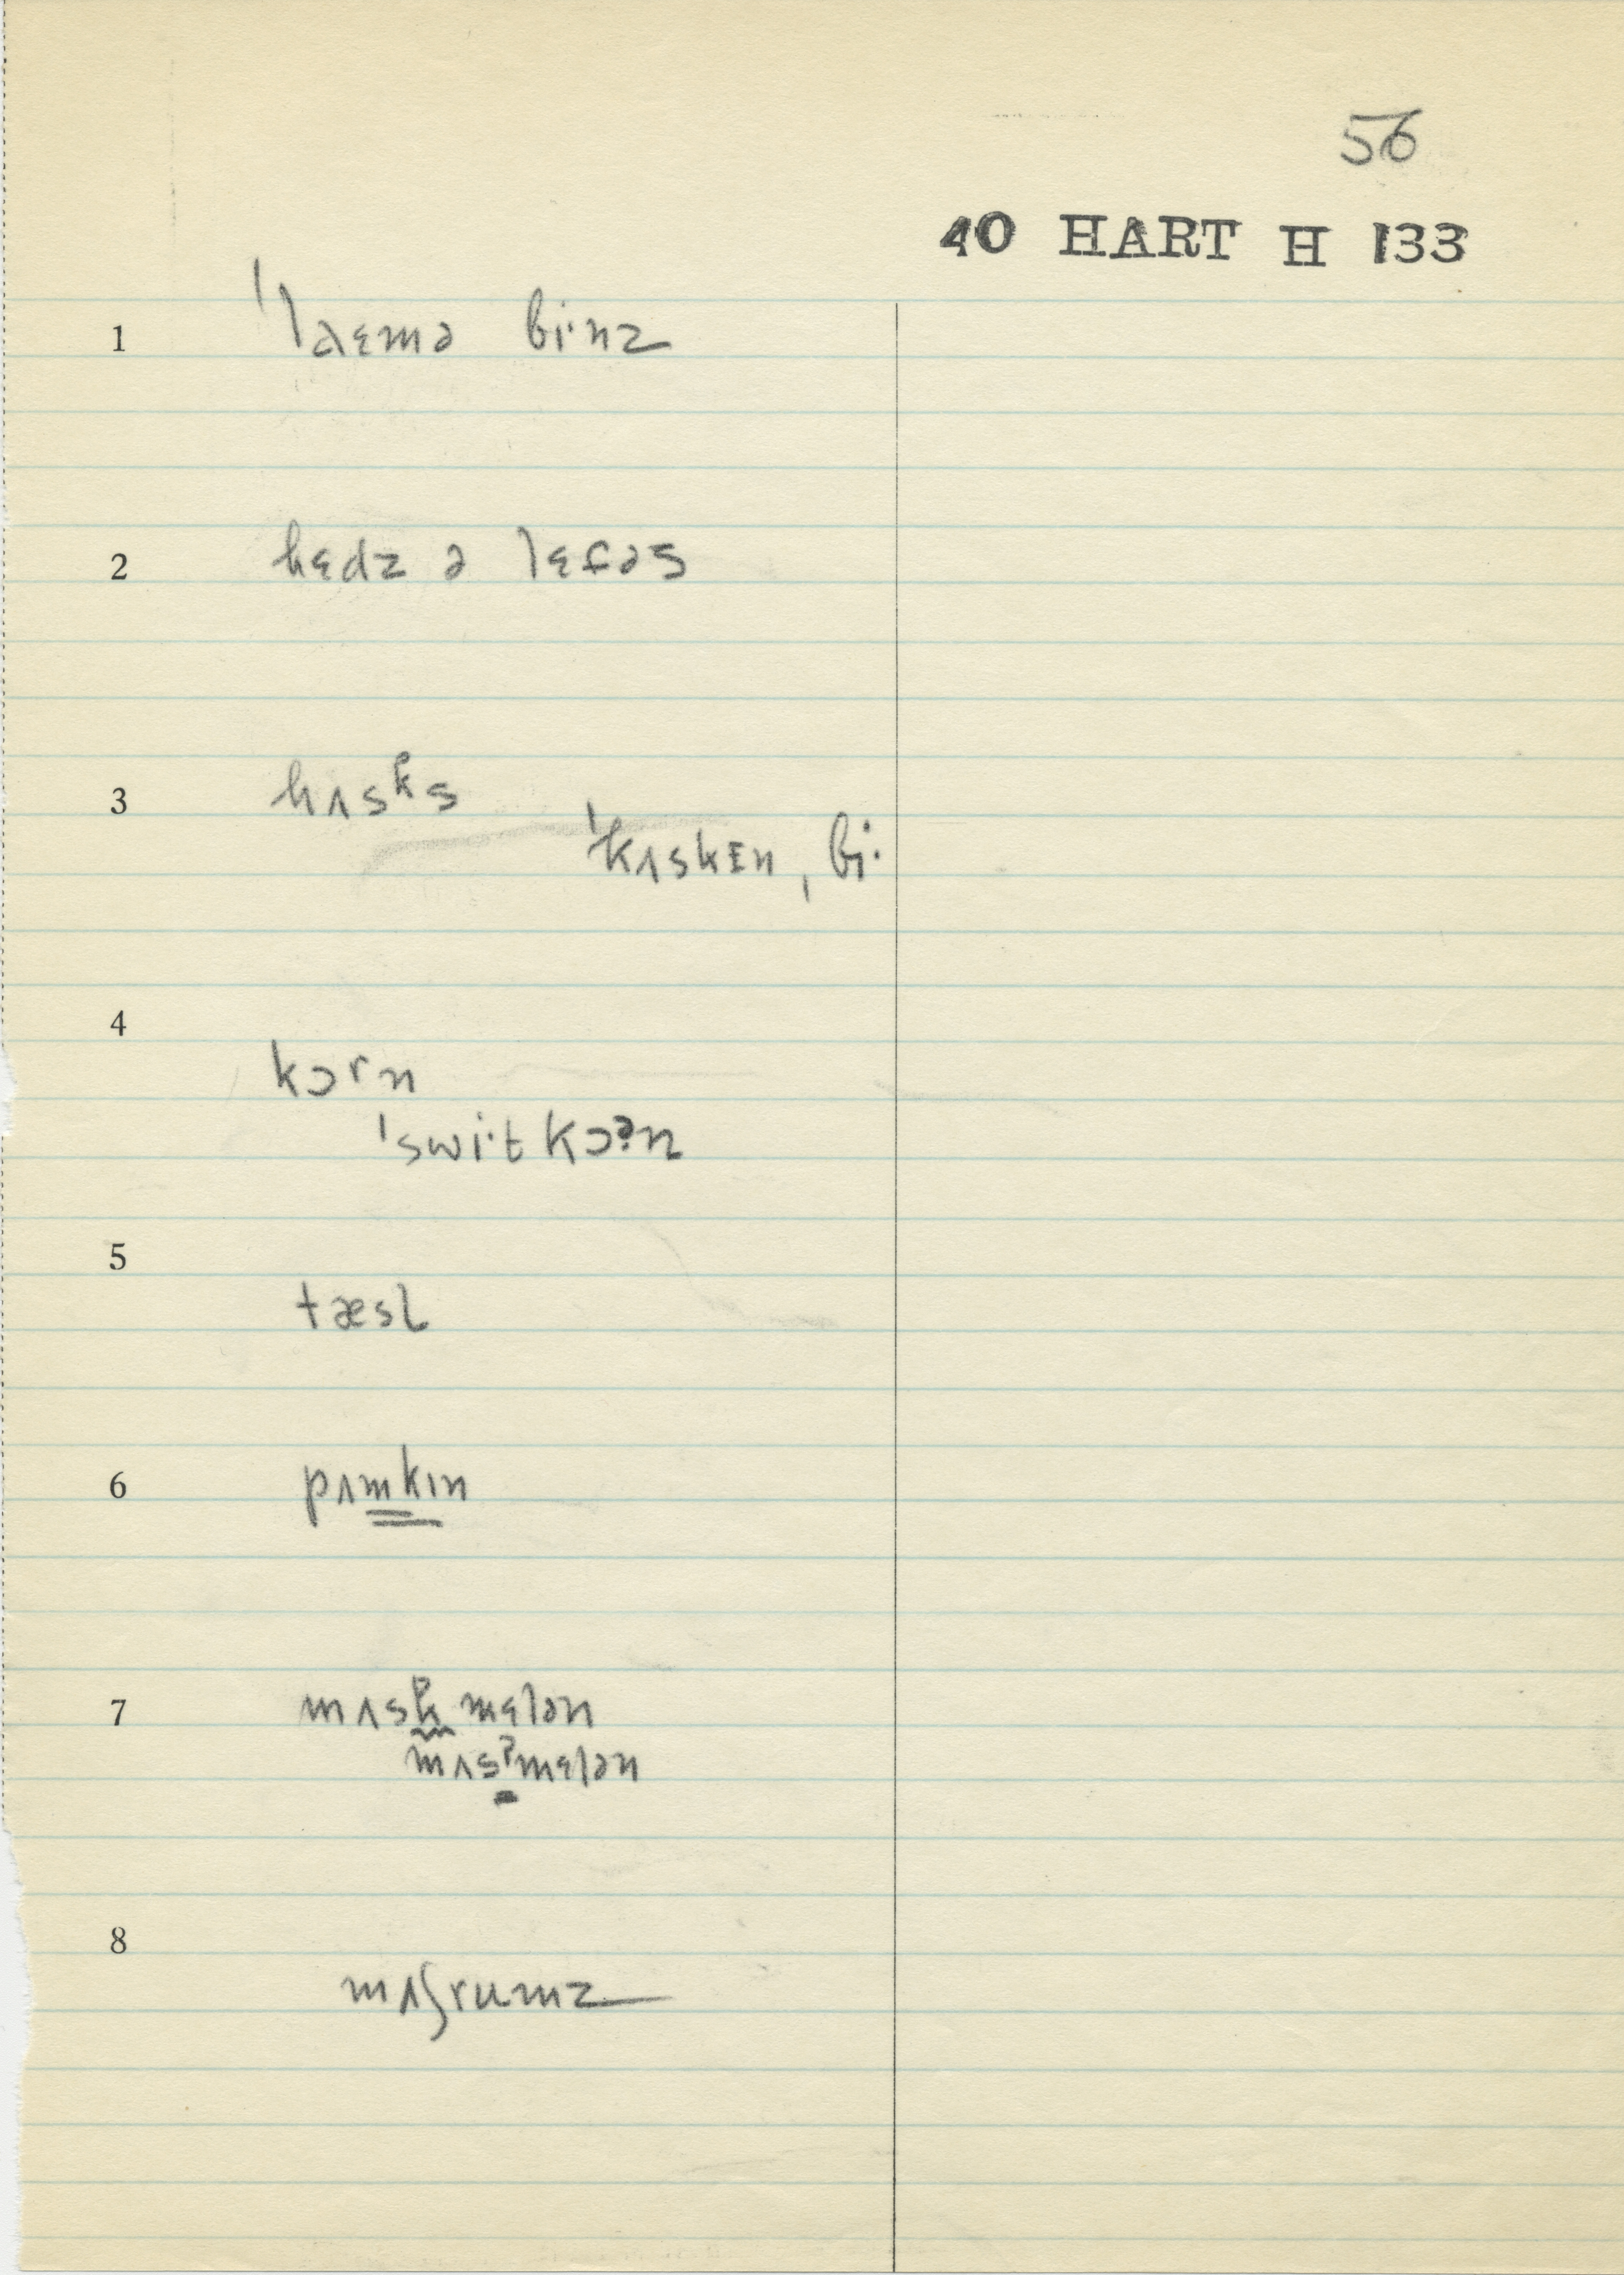 56
40 HART H 133
1 ˈlaɛmə bi·nz
2 hɛdz ə lɛfəs
3 hʌsᵏs
ˈkʌskɪn ˌbi·
4 kɔrn
ˈswi·t kɔᵊn
5 tæsl
6 pʌmkɪn
7 mʌsk mɛlən
mʌsˀmɛlən
8 mʌʃrumz